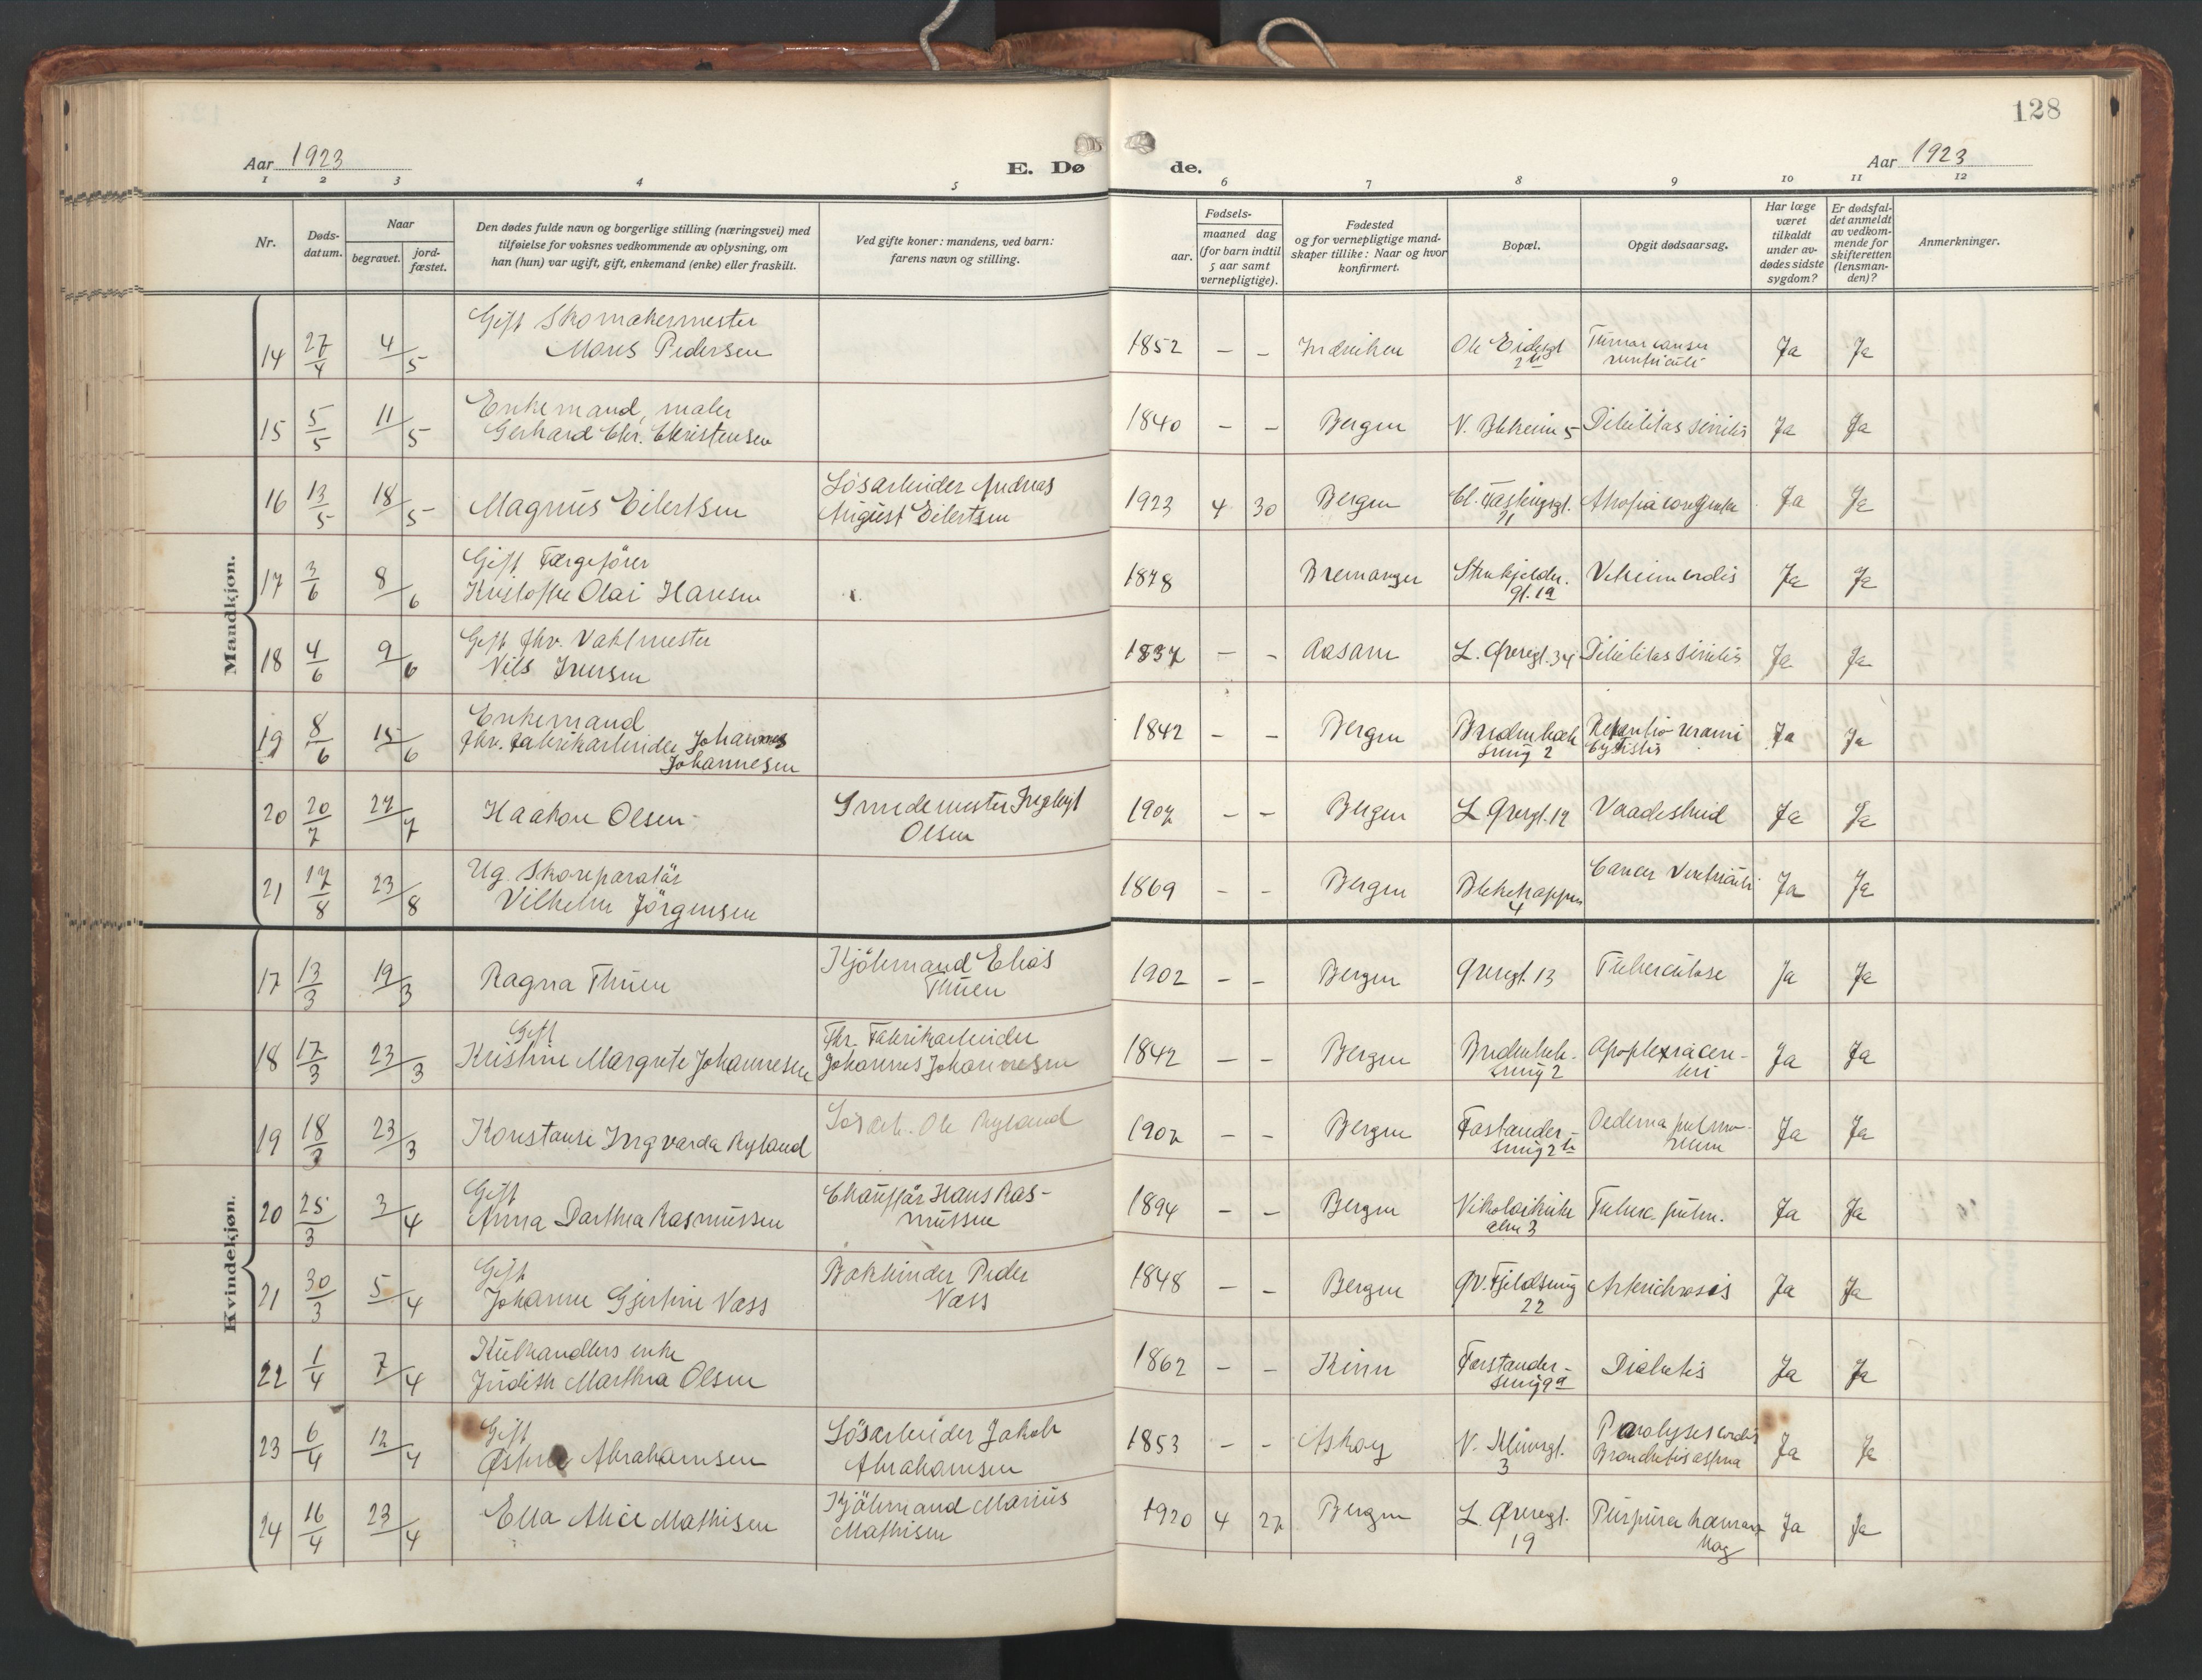 128
Aar 1923
E. Dø
de.
Aar 1923
1 2 3 4 5 6 7 8 9 10 11 12
Nr.
Døds-
datum.
Naar
begravet.
jord-
fæstet.
Den dødes fulde navn og borgerlige stilling (næringsvei) med
tilføielse for voksnes vedkommende av oplysning, om
han (hun) var ugift, gift, enkemand (enke) eller fraskilt.
Ved gifte koner: mandens, ved barn:
farens navn og stilling.
Fødsels-
aar.
maaned dag
(for barn indtil
5 aar samt
vernepligtige).
Fødested
og for vernepligtige mand-
skaper tillike: Naar og hvor
konfirmert.
Bopæl.
Opgit dødsaarsag.
Har læge
været
tilkaldt
under av-
dødes sidste
sygdom?
Er dødsfal-
det anmeldt
av vedkom-
mende for
skifteretten
(lensman-
den)?
Anmerkninger.
Mandkjøn.
14 27/4 4/5 Gift Skomakermester
Mons Pedersen
1852 – – Indviken Ole
Tumor cancer
ventriculi
Ja Ja
15 5/5 11/5 Enkemand, maler
Gerhard Chr. Christensen
1840 – – Bergen N. Blekevei 5 Debilitas senilis Ja Ja
16 13/5 18/5 Magnus Eilertsen
Løsarbeider Andreas
August Eilertsen
1923 4 30 Bergen Ja Ja
17 3/6 8/6 Gift Færgefører
Kristoffer Olai Hansen
1878 Bremanger Stenkjelder.
gt. 19
Ja Ja
18 4/6 9/6 Gift fhv. Vaktmester
Nils Iversen
1837 – – Aasane L. Øvregt. 34 Debilitas senilis Ja Ja
19 8/6 15/6 Enkemand
fhv. fabrikarbeider Johannes
Johannesen
1842 – – Bergen Brødenbæk
smug 2
Retentio
Cystitis
Ja Ja
20 20/7 27/7 Haakon Olsen
Smedemester Ingbrigt
Olsen
1907 – – Bergen L Øvregt. 19 Vaadeskud Ja Ja
21 17/8 23/8 Ug. Skoreparatør
Vilhelm Jörgensen
1869 – – Bergen Blekehappen
4
Cancer Ventriculi Ja Ja
Kvindekjøn.
17 13/3 19/3 Ragna Thuen
Kjöbmand Elias
Thuen
1902 – – Bergen Øvregt. 13 Tuberculose Ja Ja
18 17/3 23/3 Gift
Kristine Margrete Johannesen
Fhv. Fabrikarbeider
Johannes Johannesen
1842 – – Bergen Brødenbæk-
smug 2
Apoplexia cere-
bri
Ja Ja
19 18/3 23/3 Konstanse Ingvarda Ryland
Løsarb. Ole Ryland
1907 – – Bergen Forstander-
smug 2b
Oedema pulmo-
num
Ja Ja
20 25/3 3/4 Gift
Anna Dorthea Rasmussen
Chauffør Hans Ras-
mussen
1894 – – Bergen Nikolaikirke
alm 3
Tuberc. pulm. Ja Ja
21 30/3 5/4 Gift
Johanne Gjertine Næss
Bokbinder Peder
Næss
1848 – – Bergen Øv. Fjeldsmug
22
Ja Ja
22 1/4 7/4 Kulhandlers enke
Judith Marthea Olsen
1862 – – Kinn Forstander-
smug 9a
Diabetis Ja Ja
23 6/4 12/4 Gift
Abrahamsen
Løsarbeider Jakob
Abrahamsen
1853 – – Askøy N. Stensgt.
3
Paralyses cordis
Bronchitis astma
Ja Ja
24 16/4 23/4 Ella Alice Mathisen
Kjöbmand Marius
Mathisen
1920 4 27 Bergen L. Øvregt.
19
Purpura hæmorr
hag
Ja Ja